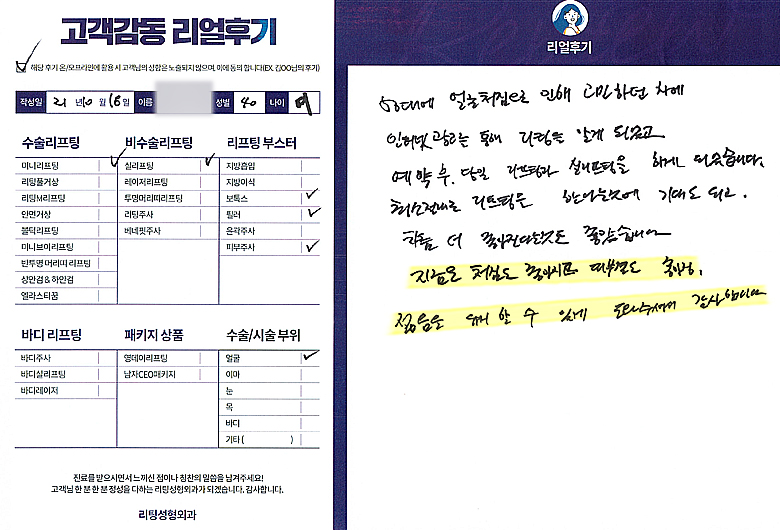 고객감동 리얼후기
해당 후기 온/오프라인에 활용 시 고객님의 성함은 노출되지 않으며, 이에 동의 합니다(EX. 김OO님의 후기)
작성일 21 년 10 월 16 일 이름 성별 40 나이 여
수술리프팅
미니리프팅
리팅풀거상
리팅M리프팅
안면거상
볼턱리프팅
미니브이리프팅
반투명 머리띠 리프팅
상안검 & 하안검
엘라스티꿈
비수술리프팅
실리프팅
레이저리프팅
투명머리띠리프팅
리팅주사
베네핏주사
리프팅 부스터
지방흡입
지방이식
보톡스
필러
윤곽주사
피부주사
바디 리프팅
바디주사
바디실리프팅
바디레이저
패키지 상품
영데이리프팅
남자CEO패키지
수술/시술 부위
얼굴
이마
눈
목
바디
기타 ( )
진료를 받으시면서 느끼신 점이나 칭찬의 말씀을 남겨주세요!
고객님 한 분 한 분 정성을 다하는 리팅성형외과가 되겠습니다. 감사합니다.
리팅성형외과
리얼후기
얼굴처짐으로 인해 고민하던 차에
인터넷 광고를 통해 리팅을 알게 되었고
예약 후, 당일 리프팅과 실리프팅을 하게 되었습니다.
리프팅을 기대도 되고.
더 좋아진다는것도 좋았습니다
지금은 처짐도 좋아지고 피부결도
젊음을 유지 할 수 있게 도와주셔서 감사합니다